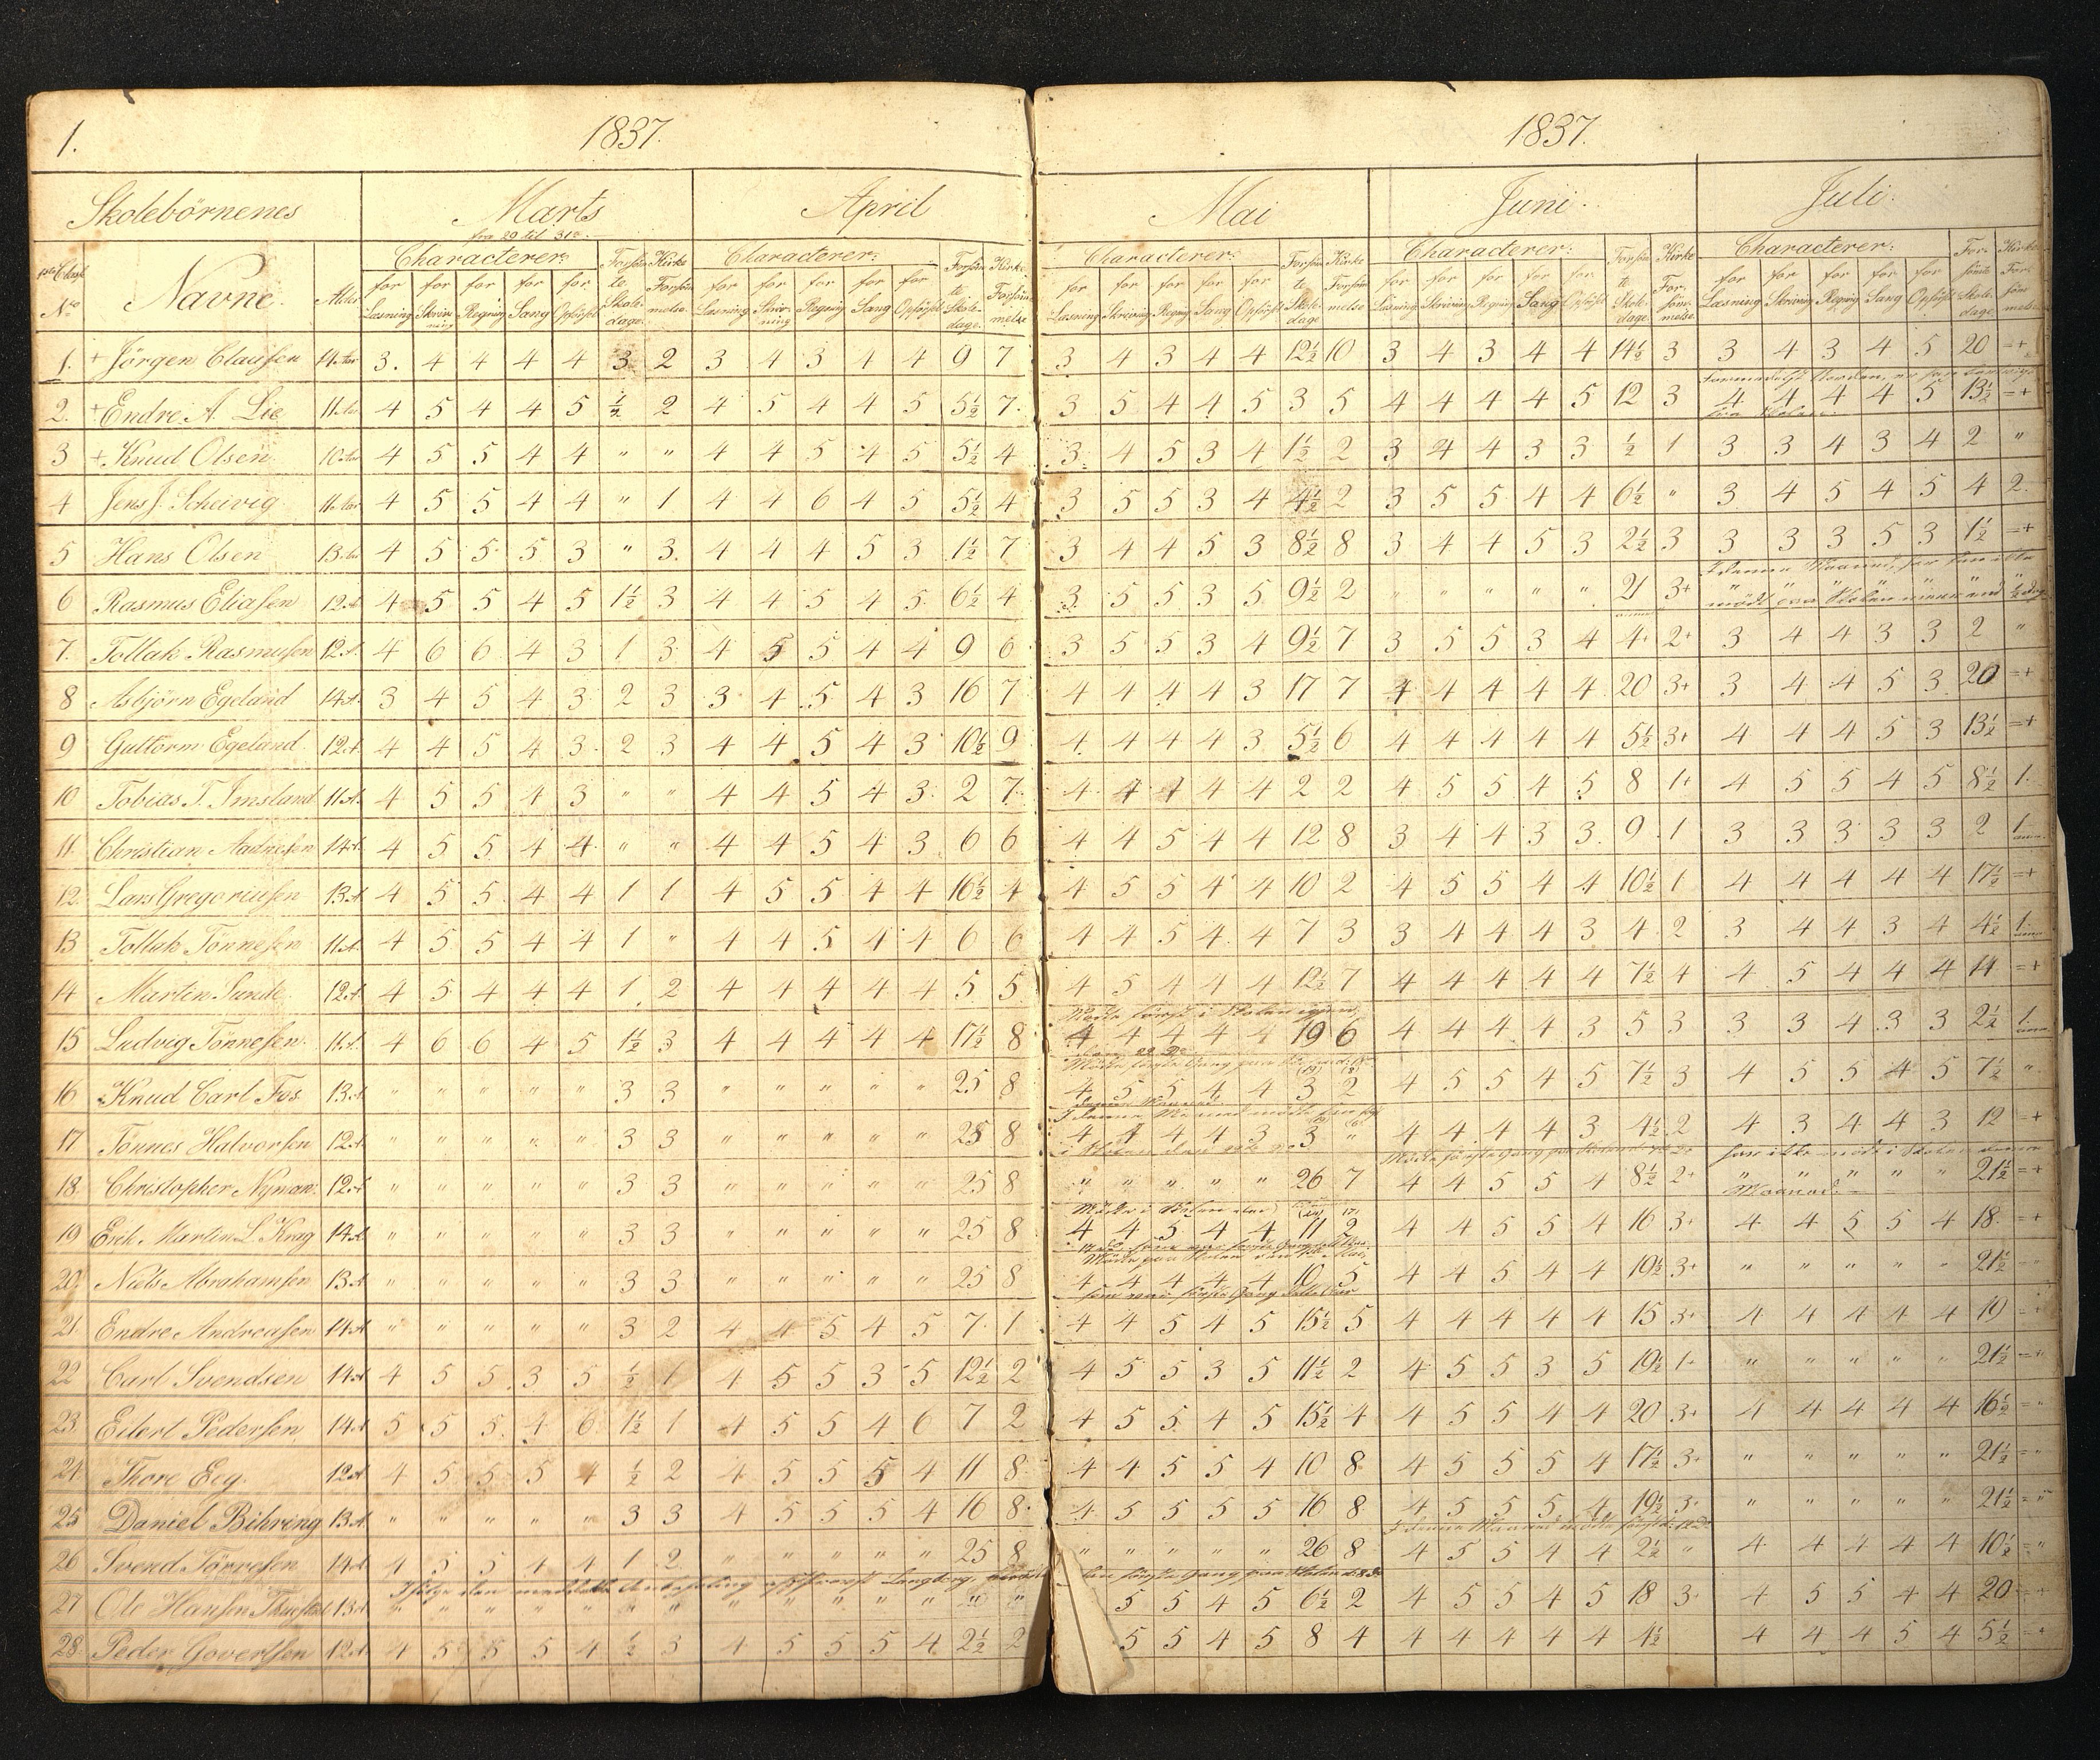 1. 1837. 1837.
Skolebörnenes Marts April Mai Juni Juli.
fra 29 til 31te
Characterer: Characterer: Characterer: Characterer: Characterer:
No Navne. Alder
for for for for for for for for for for for for for for for for for for for for for for for for for
Læsning Skrivning Regning Sang Opførsel Forsømte Skoledage Kirke Forsømmelse Læsning Skrivning Regning Sang Opförsel Forsømte Skoledage Kirke Forsømmelse Læsning Skrivning Regning Sang Opførsel Forsømte Skoledage Kirke Forsømmelse Læsning Skrivning Regning Sang Opførsel Forsømte Skoledage Kirke Forsømmelse Læsning Skrivning Regning Sang Opførsel Forsømte Skoledage Kirke Forsømmelse
1. + Jörgen Claussen 14 Aar 3. 4 4 4 4 3 2 3 4 3 4 4 9 7 3 4 3 4 4 12½ 10 3 4 3 4 4 14½ 3 3 4 3 4 5 20 =+
2. + Endre A. Lie 11 Aar 4 5 4 4 5 ½ 2 4 5 4 4 5 5½ 7. 3 5 4 4 5 3 5 4 4 4 4 5 12 3 4 4 4 4 5 13½ =+
3 + Knud Olsen 10 Aar 4 5 5 4 4 " " 4 4 5 4 5 5½ 4 3 4 5 3 4 1½ 2 3 4 4 3 3 ½ 1 3 3 4 3 4 2 "
4 Jens J. Scheivig 11 Aar 4 5 5 4 4 " 1 4 4 6 4 5 5½ 4 3 5 5 3 4 4½ 2 3 5 5 4 4 6½ " 3 4 5 4 5 4 2.
5 Hans Olsen 13 Aar 4 5 5 5 3 " 3. 4 4 4 5 3 1½ 7 3 4 4 5 3 8½ 8 3 4 4 5 3 2½ 3 3 3 3 5 3 1½ =+
I denne Maaned har han ikke
6 Rasmus Eliasen 12 A 4 5 5 4 5 1½ 3 4 4 5 4 5 6½ 4 3 5 5 3 5 9½ 2 " " " " " 21 3+ mödt paa Skolen meer end ½ dag
7. Tollak Rasmusen 12 A. 4 6 6 4 3 1 3 4 5 5 4 4 9 6 3 5 5 3 4 9½ 7 3 5 5 3 4 4+ 2+ 3 4 4 3 3 2 "
8 Asbjörn Egeland 14 A. 3 4 5 4 3 2 3 3 4 5 4 3 16 7 4 4 4 4 3 17 7 4 4 4 4 4 20 3+ 3 4 4 5 3 20 =+
9 Guttorm Egeland 12 A 4 4 5 4 3 2 3 4 4 5 4 3 10½ 9 4 4 4 4 3 5½ 6 4 4 4 4 4 5½ 3+ 4 4 4 5 3 13½ =+
10 Tobias T. Imsland 11 A. 4 5 5 4 3 " " 4 4 5 4 3 2 7. 4 4 4 4 4 2 2 4 5 5 4 5 8 1+ 4 5 5 4 5 8½ 1.
11. Christian Aadnesen 14 A. 4 5 5 4 4 " " 4 4 5 4 3 6 6 4 4 5 4 4 12 8 3 4 4 3 3. 9 1 3 3 3 3 3 2 1
12. Lars Gregoriusen 13 A 4 5 5 4 4 1 1 4 5 5 4 4 16½ 4 4 5 5 4 4 10 2 4 5 5 4 4 10½ 1 4 4 4 4 4 17½ =+
13 Tollak Tönnesen 11 A. 4 5 5 4 4 1 " 4 4 5 4 4 6 6 4 4 5 4 4 7 3 3 4 4 4 3 4 2 3 4 4 3 4 4½ 1
14 Martin Sunde 12 A 4 5 4 4 4 1 2 4 4 4 4 4 5 5 4 5 4 4 4 12½ 7 4 4 4 4 4 7½ 4 4 5 4 4 4 14 =+
15 Ludvig Tönnesen 11 A. 4 6 6 4 5 1½ 3 4 4 4 4 4 17½ 8 4 4 4 4 4 19 6 4 4 4 4 3 5 3 3 3 4 3 3 2½ 1
16 Knud Carl Fos 13 A " " " " " 3 3 " " " " " 25 8 4 5 5 4 4 3 2 4 5 5 4 5 7½ 3 4 5 5 4 5 7½ "
17 Tönnes Halvorsen 12 A " " " " " 3 3 " " " " " 25 8 4 4 4 4 3 3 " 4 4 4 4 3 4½ 2 4 3 4 4 3 12 =+
har ikke mödt i Skolen denne
18. Christopher Nyman 12 A " " " " " 3 3 " " " " " 25 8 " " " " " 26 7 4 4 5 5 4 8½ 2+ " " " " " 21½ =+
Maaned.
19 Erik Martin L. Krag 14 A " " " " " 3 3 " " " " " 25 8 4 4 5 4 4 11 2 4 4 5 5 4 16 3+ 4 4 5 5 4 18 =+
20. Niels Abrahamsen 13 A " " " " " 3 3 " " " " " 25 8 4 4 4 4 4 10 5 4 4 5 4 4 19½ 3+ " " " " " 21½ ="
21. Endre Andreasen 14 A " " " " " 3 2 4 4 5 4 5 7. 1 4 4 5 4 5 15½ 5 4 4 4 4 4 15 3+ 4 4 4 4 4 19 =+
22 Carl Svendsen 14 A 4 5 5 3 5 ½ 1 4 5 5 3 5 12½ 2 4 5 5 3 5 11½ 2 4 5 5 3 5 19½ 1+ " " " " " 21½ =+
23. Eilert Pedersen 14 A 5 5 5 4 6 1½ 1 4 5 5 4 6 7 2 4 5 5 4 5 15½ 4 4 5 5 4 4 20 3+ 4 4 4 4 4 16½ ="
24 Thore Eeg. 12 A 4 5 5 5 4 ½ 2 4 5 5 5 4 11 8 4 4 5 5 4 10 8 4 5 5 5 4 17½ 3+ " " " " " 21½ ="
25 Daniel Bihring 13 A. " " " " " 3 3 4 5 5 5 4 16 8. 4 5 5 5 5 16 8 4 5 5 5 4 19½ 3+ " " " " " 21½ ="
26 Svend Törresen 14 A 4 5 5 4 4 1 2 " " " " " 25 8 " " " " " 26 8 4 5 5 4 4 2½ " 4 4 4 4 4 10½ ="
27 Ole Hansen 13 A " " " " " " " " " " " " " " 5 5 4 5 6½ 2 4 5 5 4 5 18 3+ 4 5 5 4 4 20 =+
28. Peder Govertsen 12 A 4 5 5 5 4 ½ 3 4 5 5 5 4 2½ 2 5 5 4 5 8 4 4 4 4 4 4 4½ 4 4 4 5 4 5½ =+